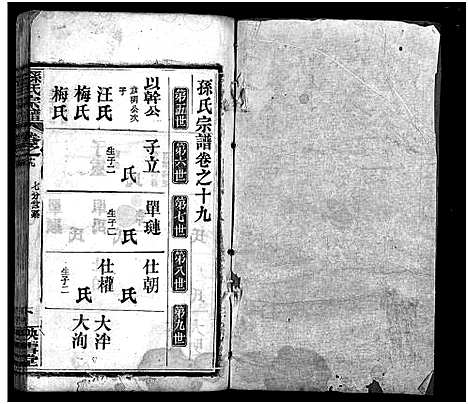 孫氏宗譜卷之十九
第五世
第六世
第七世
第八世
第九世
以幹公
子
汪氏
梅氏
梅氏
子立
氏
生子二
單璉
氏
生子二
仕朝
氏
仕權
氏
生子二
大泮
大洵
孫氏宗譜